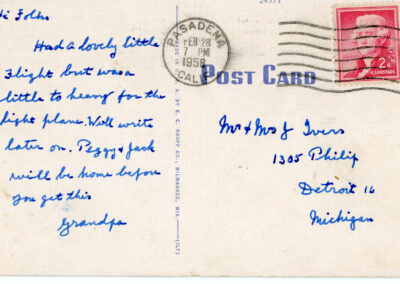 Hi Folks
Had a lovely little
flight but was a
little to heavy for the
light plane. Will write
later on. Peggy & Jack
will be home before
you get this
Grandpa
PASADENA
FEB 28
7 PM
1956
CALIF
POST CARD
U.S. POSTAGE
2¢
Mr & Mrs J Ivers
1305 Philip
Detroit 16
Michigan